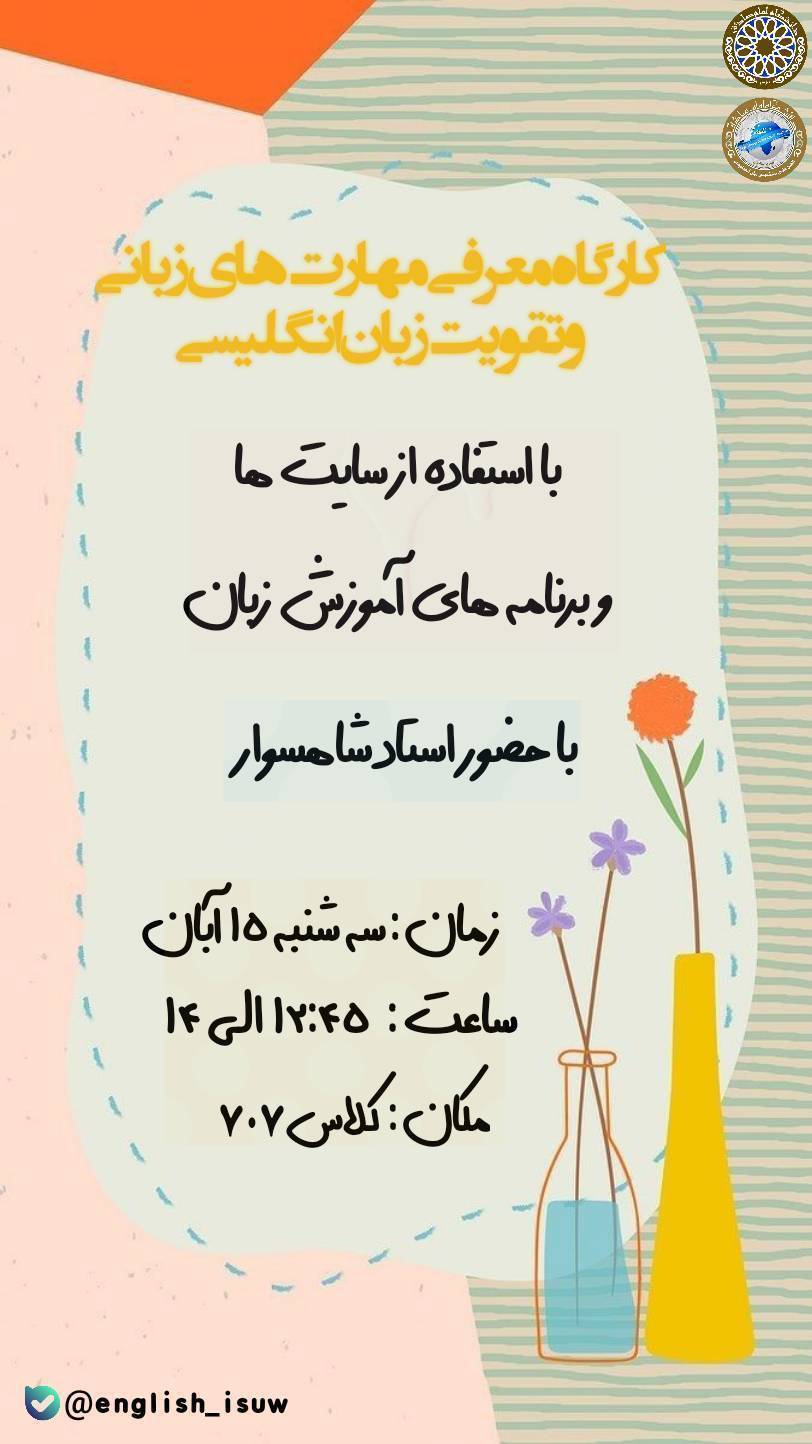 کارگاه معرفی مهارت های زبانی
و تقویت زبان انگلیسی
با استفاده از سایت ها
و برنامه های آموزش زبان
با حضور استاد شاهسوار
زمان : سه شنبه ۱۵ آبان
ساعت : ۱۲:۴۵ الی ۱۴
مکان : کلاس ۷۰۷
@english_isuw